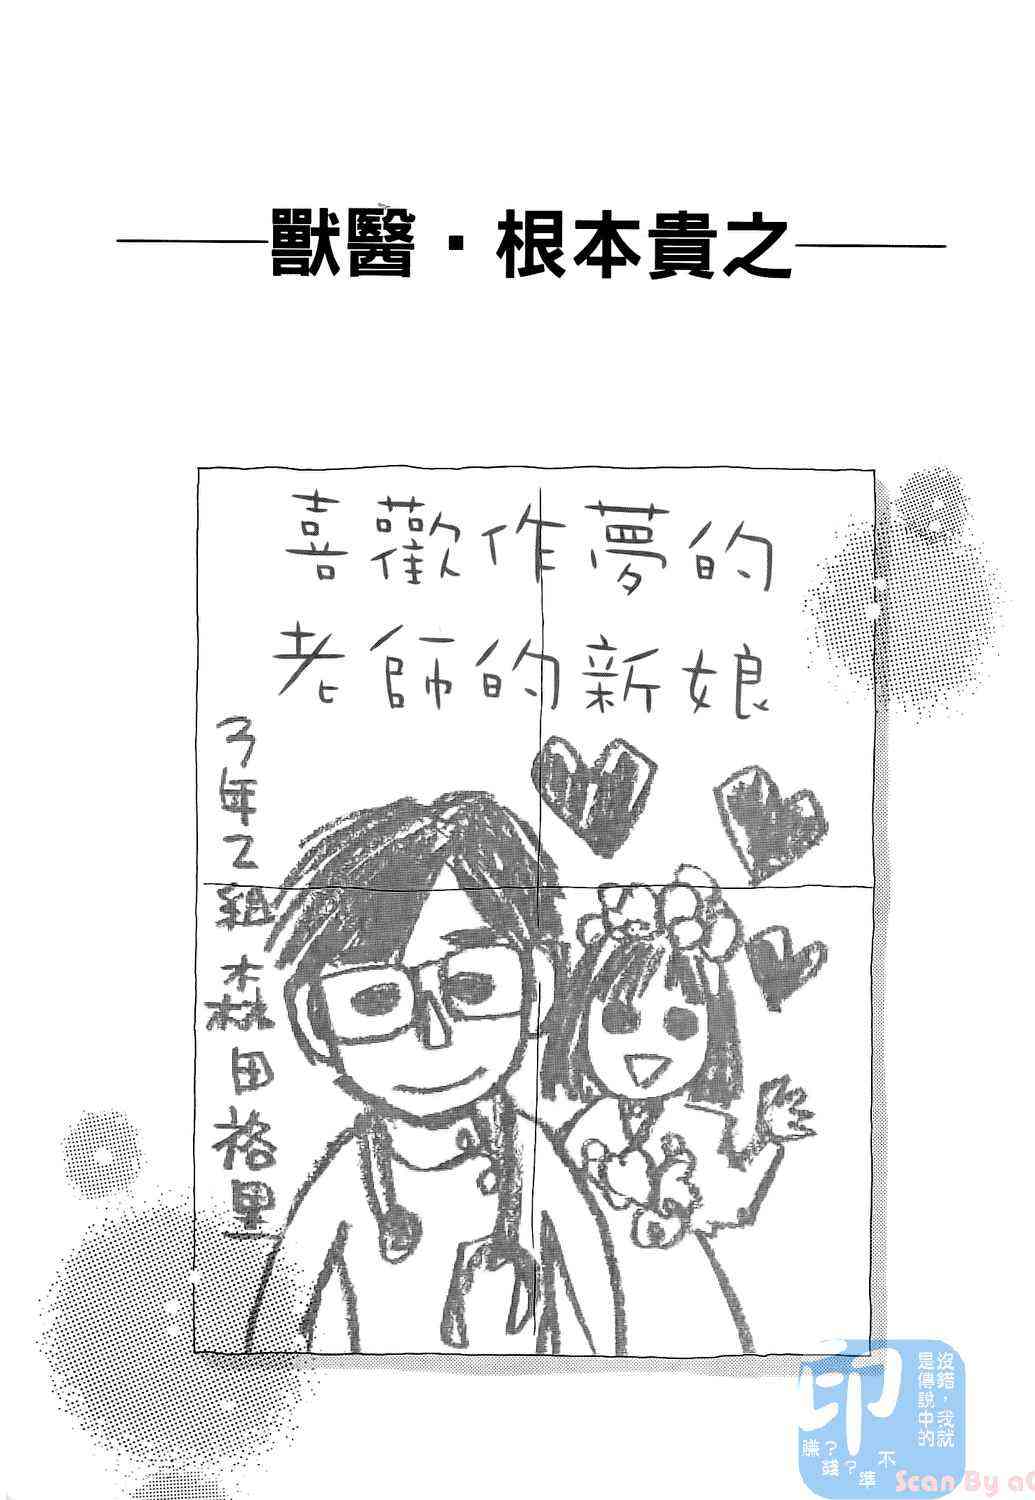 獸醫·根本貴之
喜歡作夢的
老師的新娘
3年2組 森田裕里
沒錯，我就
是傳說中的
印
不
準
？
錢
？
賺
Scan By a